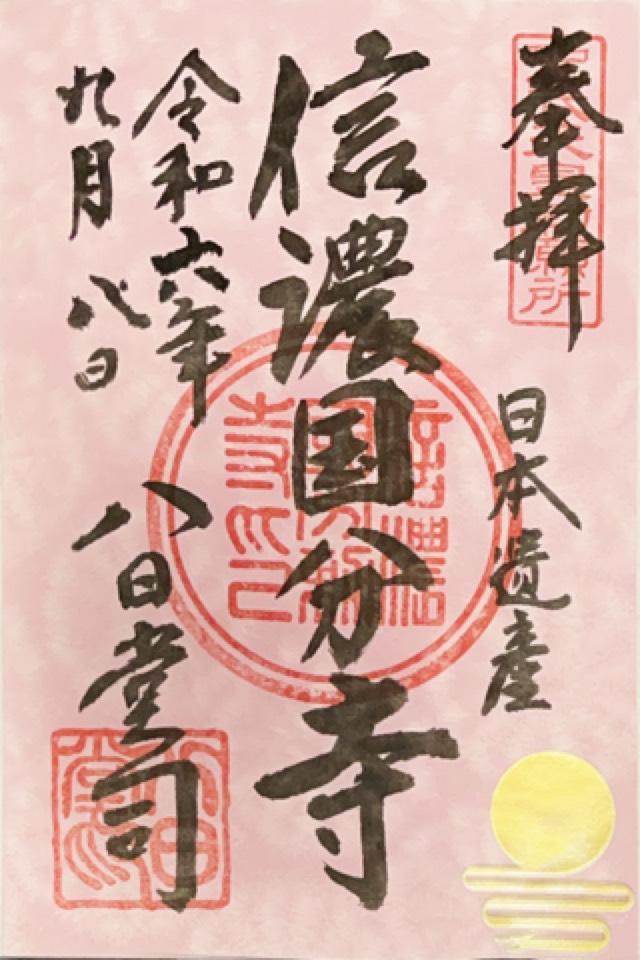 奉拝
日本遺産
信濃国分寺
令和六年
九月八日
八日堂司